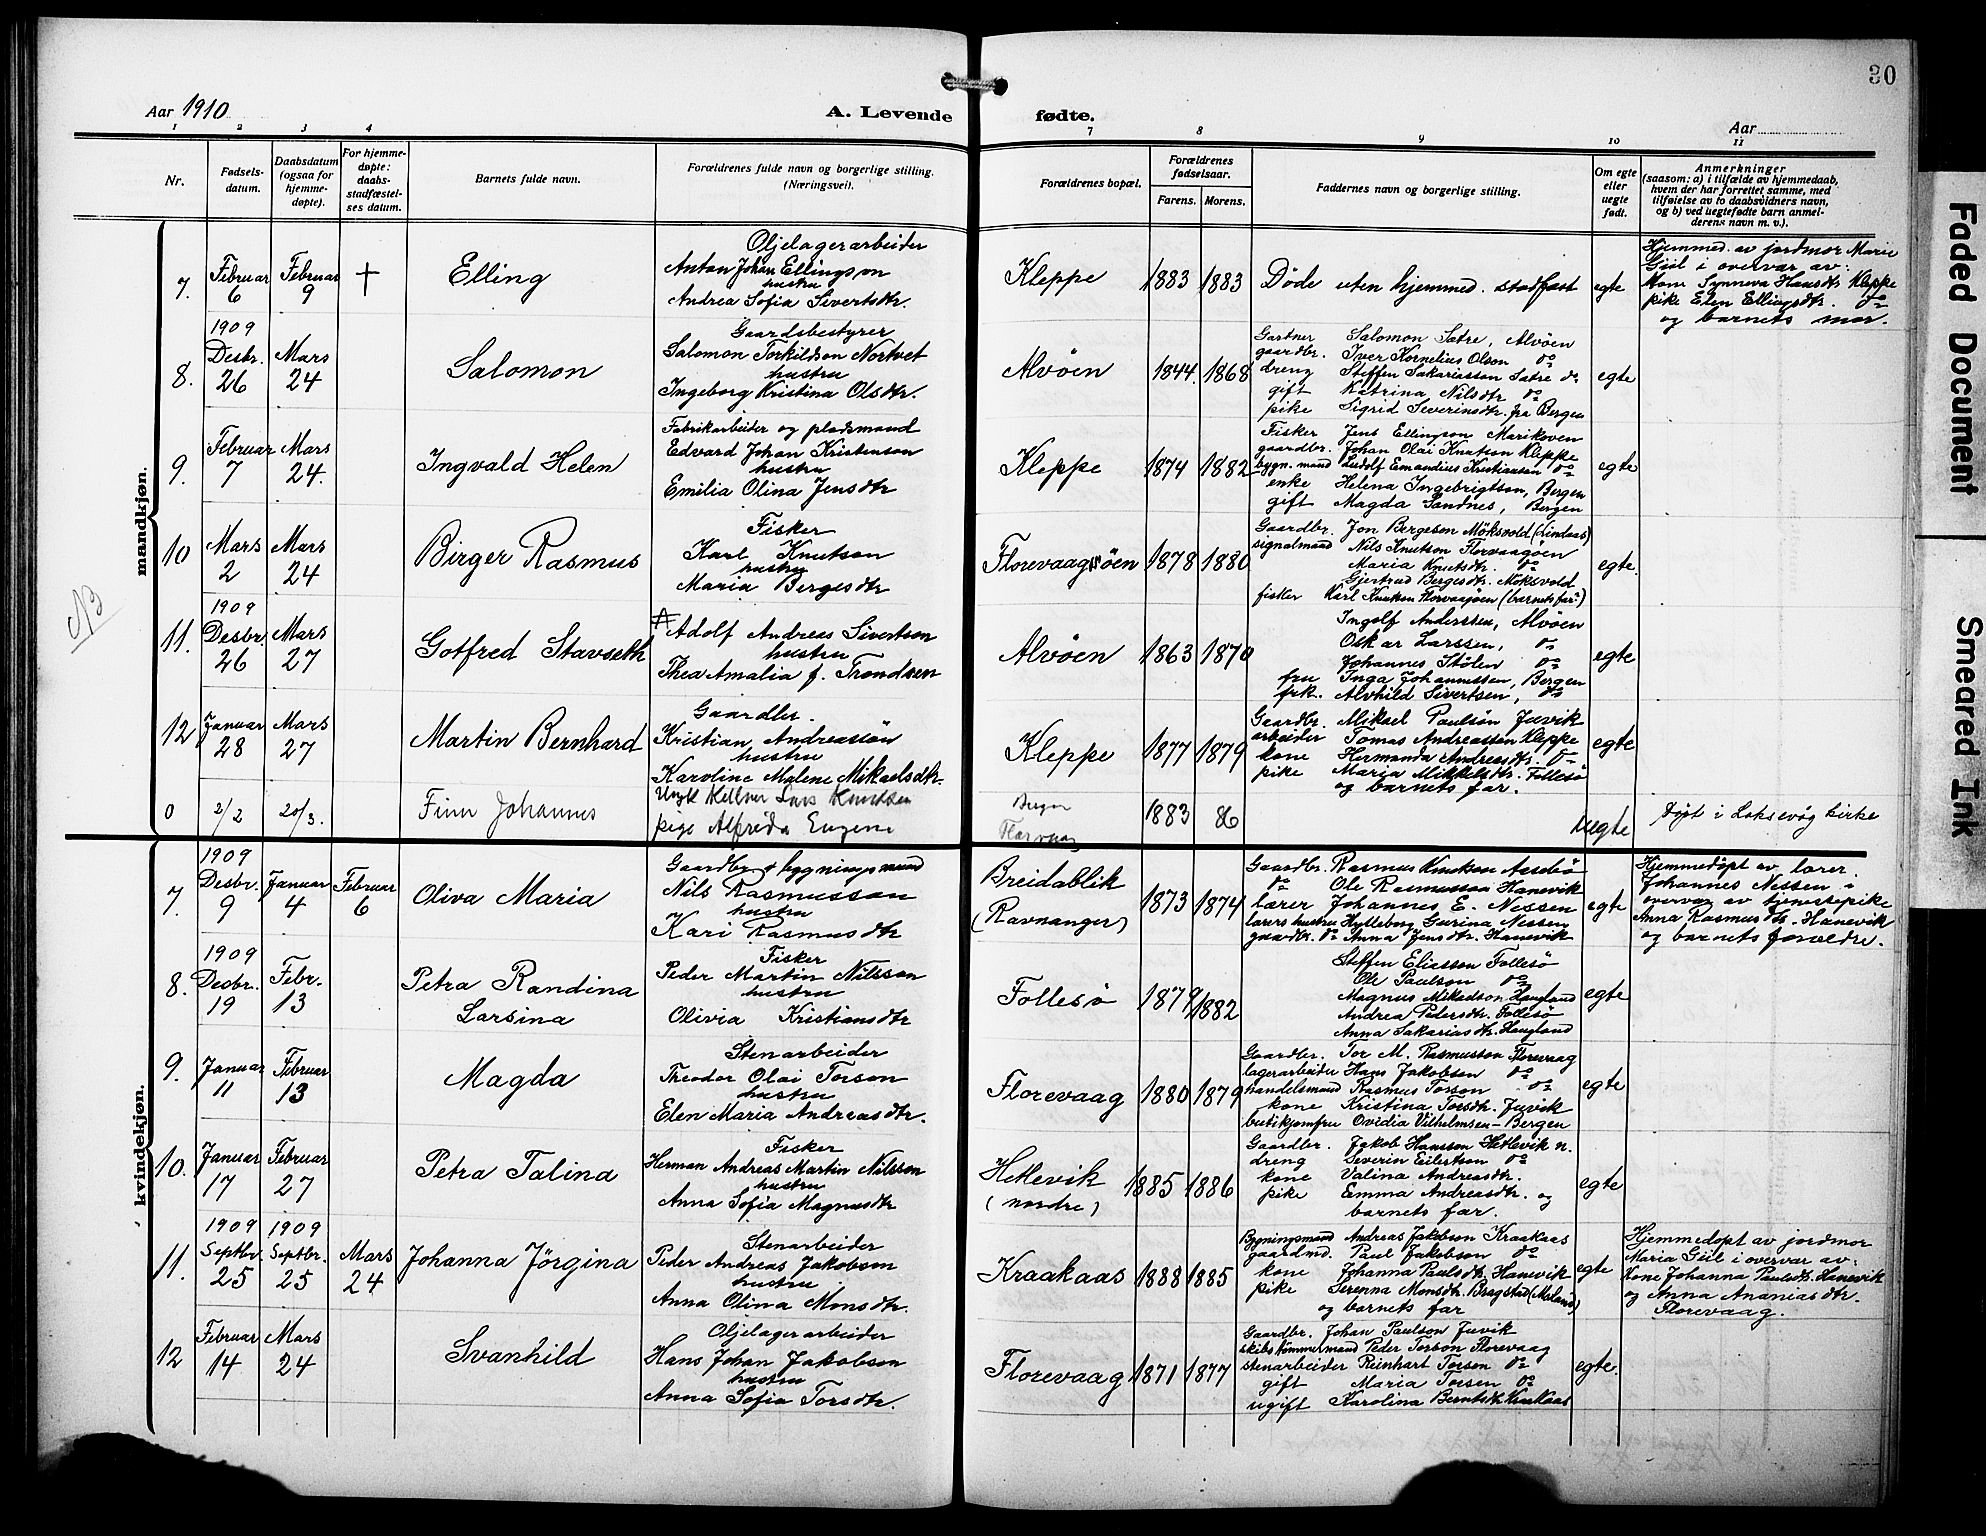 30
Aar 1910
A. Levende fødte.
Aar
1 2 3 4 7 8 9 10 11
Nr.
Fødsels-
datum.
Daabsdatum
(ogsaa for
hjemme-
døpte).
For hjemme-
døpte:
daabs-
stadfæstel-
ses datum.
Barnets fulde navn.
Forældrenes fulde navn og borgerlige stilling.
(Næringsvei).
Forældrenes bopæl.
Forældrenes
fødselsaar.
Farens. Morens.
Faddernes navn og borgerlige stilling.
Om egte
eller
uegte
født.
Anmerkninger
(saasom: a) i tilfælde av hjemmedaab,
hvem der har forrettet samme, med
tilføielse av to daabsvidners navn,
og b) ved uegtefødte barn anmel-
derens navn m. v.).
mandkjøn.
7.
Februar
6
Februar
9
†
Elling
Oljelagerarbeider
Anton Johan Ellingson
hustru
Andrea Sofia Sivertsdtr.
Kleppe
1883 1883
Døde uten hjemmed. stadfæst
egte
Hjemmed. av jordmor Marie
Giil i overvær av:
Kone Synneva Hansdtr. Kleppe
pike Elen Ellingsdtr. do
og barnets mor.
8.
1909
Desbr.
26
Mars
24
Salomon
Gaardsbestyrer
Salomon Torkildson Nortvet
hustru
Ingeborg Kristina Olsdtr.
Alvøen
1844. 1868
Gartner Salomon Sætre, Alvøen
gaardbr. Iver Kornelius Olson do
dreng Steffen Sakariasson Sætre do
gift Katrina Nilsdtr do
pike Sigrid Severinsdtr. fra Bergen
egte
9.
Februar
7
Mars
24.
Ingvald Helen
Fabrikarbeider og pladsmand
Edvard Johan Kristenson
hustru
Emilia Olina Jensdtr
Kleppe
1874 1882
Fisker Jens Ellingson Marikoven
gaardbr. Johan Olai Knutson Kleppe
bygn. mand Ludolf Emandius Kristiansen do
enke Helena Ingebrigtson, Bergen
gift Magda Sandnes, Bergen
egte
10
Mars
2
Mars
24
Birger Rasmus
Fisker
Karl Knutson
hustru
Maria Bergesdtr
Florevaagsøen
1878 1880
Gaardbr. Jon Bergeson Möksvold (Lindaas)
signalmand Nils Knutson Florvaagøen
Maria Knutsdtr. do
Gjertrud Bergesdtr. Moksvold
fisker Karl Knutson Florvaagøen (barnets far)
egte.
NB
11.
1909
Desbr.
26
Mars
27
Gotfred Stavseth
Adolf Andreas Sivertson
hustru
Thea Amalia f. Trondsen
Alvøen
1863 1870
Ingolf Anderssen, Alvøen
Oskar Larssen, do
Johannes Stølen do
fru Inga Johannessen, Bergen
frk. Alvhild Sivertsen, do
egte
12
Januar
28
Mars
27
Martin Bernhard
Gaardbr.
Kristian Andreassøn
hustru
Karoline Malene Mikaelsdtr.
Kleppe
1877 1879
Gaardbr. Mikael Paulsøn Juvik
arbeider Tomas Andreassen Kleppe
kone Hermanda Andreasdtr. do
pike Maria Mikkelsdtr. Follesø
og barnets far.
egte
0
2/2
20/3.
Finn Johannes
Ungk Kellner Lars Knudsen
pige Alfreda Eugene
Bergen
Florvaag
1883 86
uegte
Døpt i Laksevåg kirke
kvindekjøn.
7.
1909
Desbr.
9
Januar
4
Februar
6
Oliva Maria
Gaardbr. & bygningsmand
Nils Rasmusson
hustru
Kari Rasmusdtr
Breidablik
(Ravnanger)
1873 1874
Gaardbr. Rasmus Knutson Aasebø
do Ole Rasmusson Hanevik
lærer Johannes E. Nessen
lærers hustru Hylleborg Gurina Nessen
gaardbr. do Anna Jensdtr. Hanevik
egte
Hjemmedøpt av lærer
Johannes Nessen i
overvær av tjenestepike
Anna Rasmusdtr. Hanevik
og barnets forældre.
8.
1909
Desbr.
19
Febr.
13
Petra Randina
Larsina
Fisker
Peder Martin Nilsson
hustru
Olivia Kristiansdtr
Follesø
1879 1882
Steffen Eliasson Follesø
Ole Paulson do
Magnus Mikalson Haugland
Andrea Pedersdtr. Follesø
Anna Sakariasdtr. Haugland
egte
9.
Januar
11
Februar
13
Magda
Stenarbeider
Theodor Olai Torson
hustru
Elen Maria Andreasdtr.
Florevaag
1880 1879
Gaardbr. Tor M. Rasmusson Florevaag
lagerarbeider Hans Jakobson do
handelsmand Rasmus Torson do
kone Kristina Torsdtr. Juvik
butikjomfru Ovidia Vilhelmsen - Bergen
egte
10.
Januar
17
Februar
27
Petra Talina
Fisker
Herman Andreas Martin Nilsson
hustru
Anna Sofia Magnusdtr
Hetlevik
(nordre)
1885 1886
Gaardbr. Jakob Hansson Hetlevik n.
dreng Severin Eilertson do
kone Valina Andreasdtr.
pike Emma Andreasdtr. og
barnets far.
egte
11.
1909
Septbr.
25
1909
Septbr.
25
Mars
24
Johanna Jörgina
Stenarbeider
Peder Andreas Jakobson
hustru
Anna Olina Monsdtr.
Kraakaas
1888 1885
Bygningsmand Andreas Jakobson Kraakaas
gaardmd. Paul Jakobson do
kone Johanna Paulsdtr. Hanevik
pike Serenna Monsdtr. Bragstad (Meland)
og barnets far
egte
Hjemmedøpt av jordmor
Maria Giil i overvær av:
Kone Johanna Paulsdtr. Hanevik
og Anna Ananiasdtr.
Florevaag.
12
Februar
14
Mars
24
Svanhild
Oljelagerarbeider
Hans Johan Jakobson
hustru
Anna Sofia Torsdtr.
Florevaag
1871 1877
Gaardbr. Johan Paulson Juvik
skibstømmermand Peder Torson Florevaag
stenarbeider Reinhart Torson do
gift Maria Torsen do
ugift Karolina Berntsdtr Kraakaas
egte.
Faded Document
Smeared Ink